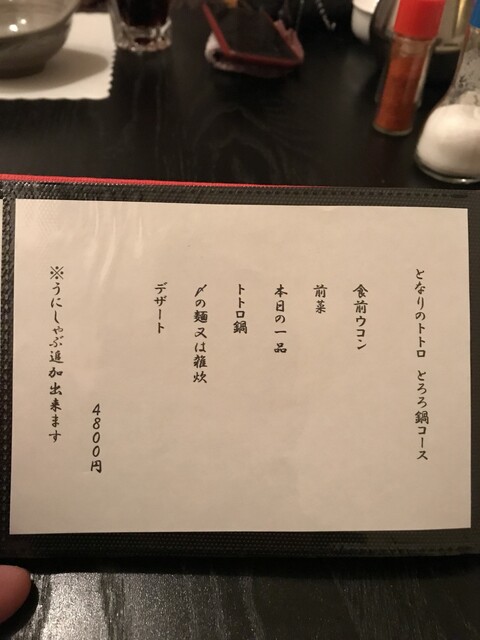 となりのトトロ とろろ鍋コース
食前ウコン
前菜
本日の一品
トトロ鍋
〆の麺又は雑炊
デザート
4800円
※うにしゃぶ追加出来ます